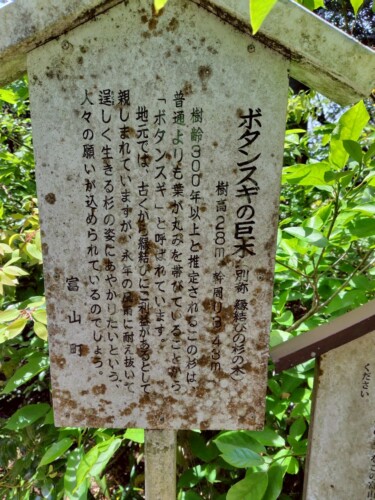 ボタンスギの巨木〈別称 縁結びの杉の木〉
樹高28m 幹周り3.43m
樹齢300年以上と推定されるこの杉は
普通よりも葉が丸みを帯びていることから
「ボタンスギ」と呼ばれています。
地元では、古くから縁結びにご利益があるとして
親しまれていますが、永年の風雨に耐え抜いて
逞しく生きる杉の姿にあやかりたいという、
人々の願いが込められているのでしょう。
富山町
ください。